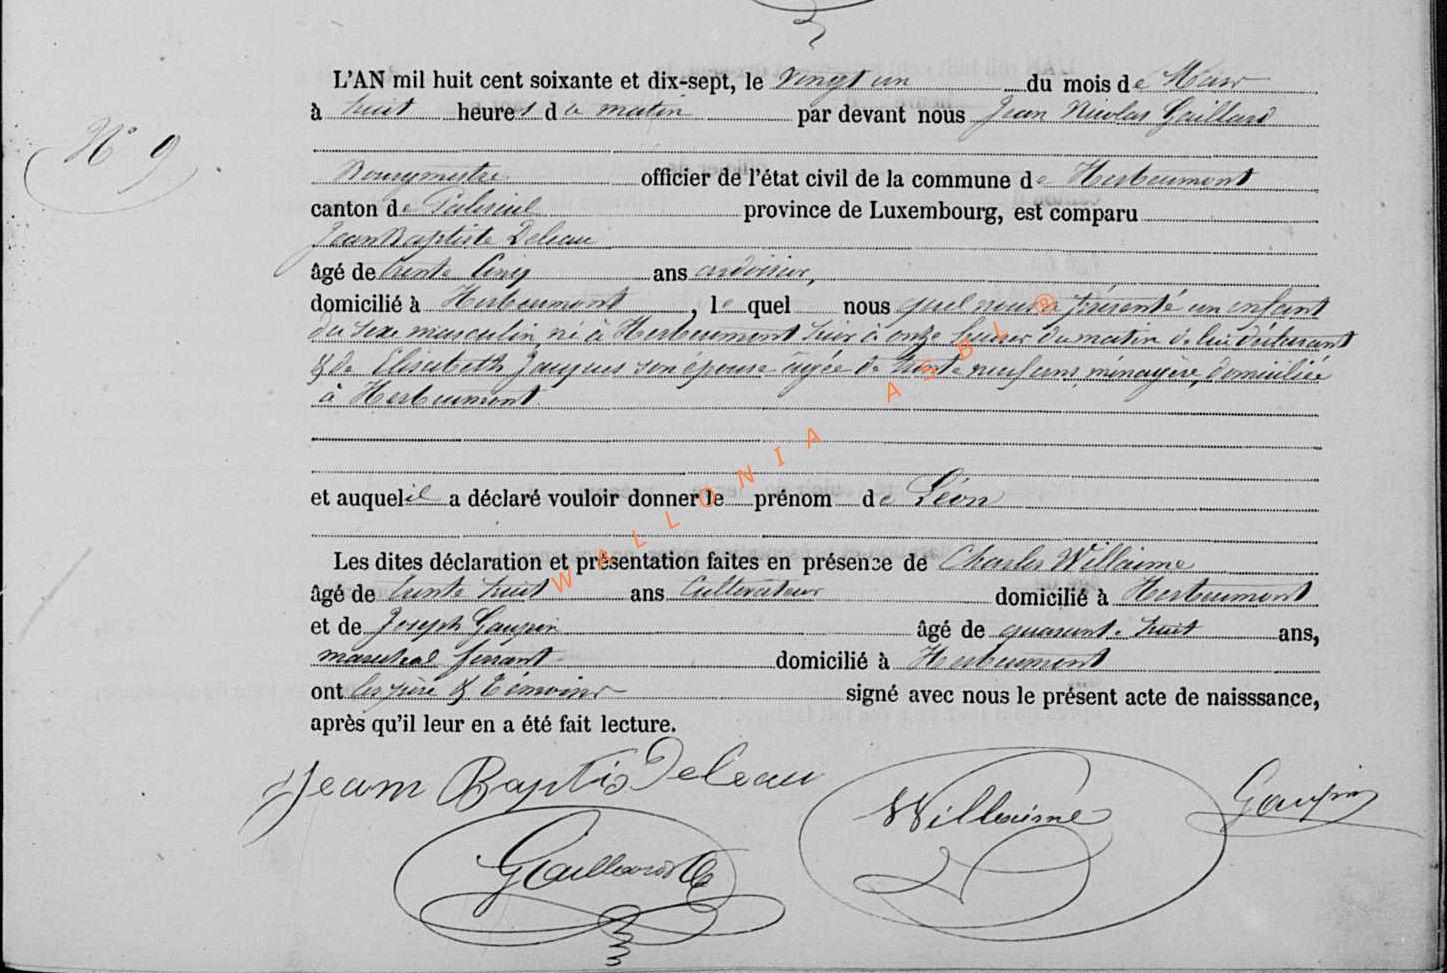 L'AN mil huit cent soixante et dix-sept, le vingt un du mois de Mars
à huit heures du matin par devant nous Jean Nicolas Gaillard
N° 9
Bourgmestre officier de l'état civil de la commune de Herbeumont
canton de Paliseul province de Luxembourg, est comparu
Jean Baptiste Deleau
âgé de trente cinq ans ardoisier,
domicilié à Herbeumont, lequel nous présenté un enfant
du sexe masculin, né à Herbeumont hier à onze heures du matin de lui déclarant
& de Elisabeth Jacques son épouse âgée de trente neuf ans, ménagère, domiciliée
à Herbeumont
et auquel il a déclaré vouloir donner le prénom de Léon
Les dites déclaration et présentation faites en présence de Charles Willaime
âgé de trente huit ans Cultivateur domicilié à Herbeumont
et de Joseph Goupin âgé de quarante huit ans,
maréchal ferrant domicilié à Herbeumont
ont les père & témoins signé avec nous le présent acte de naisssance,
après qu'il leur en a été fait lecture.
Jean Baptis Deleau
Willaime
Goupin
Gaillard
WALLONIA ASBL ®